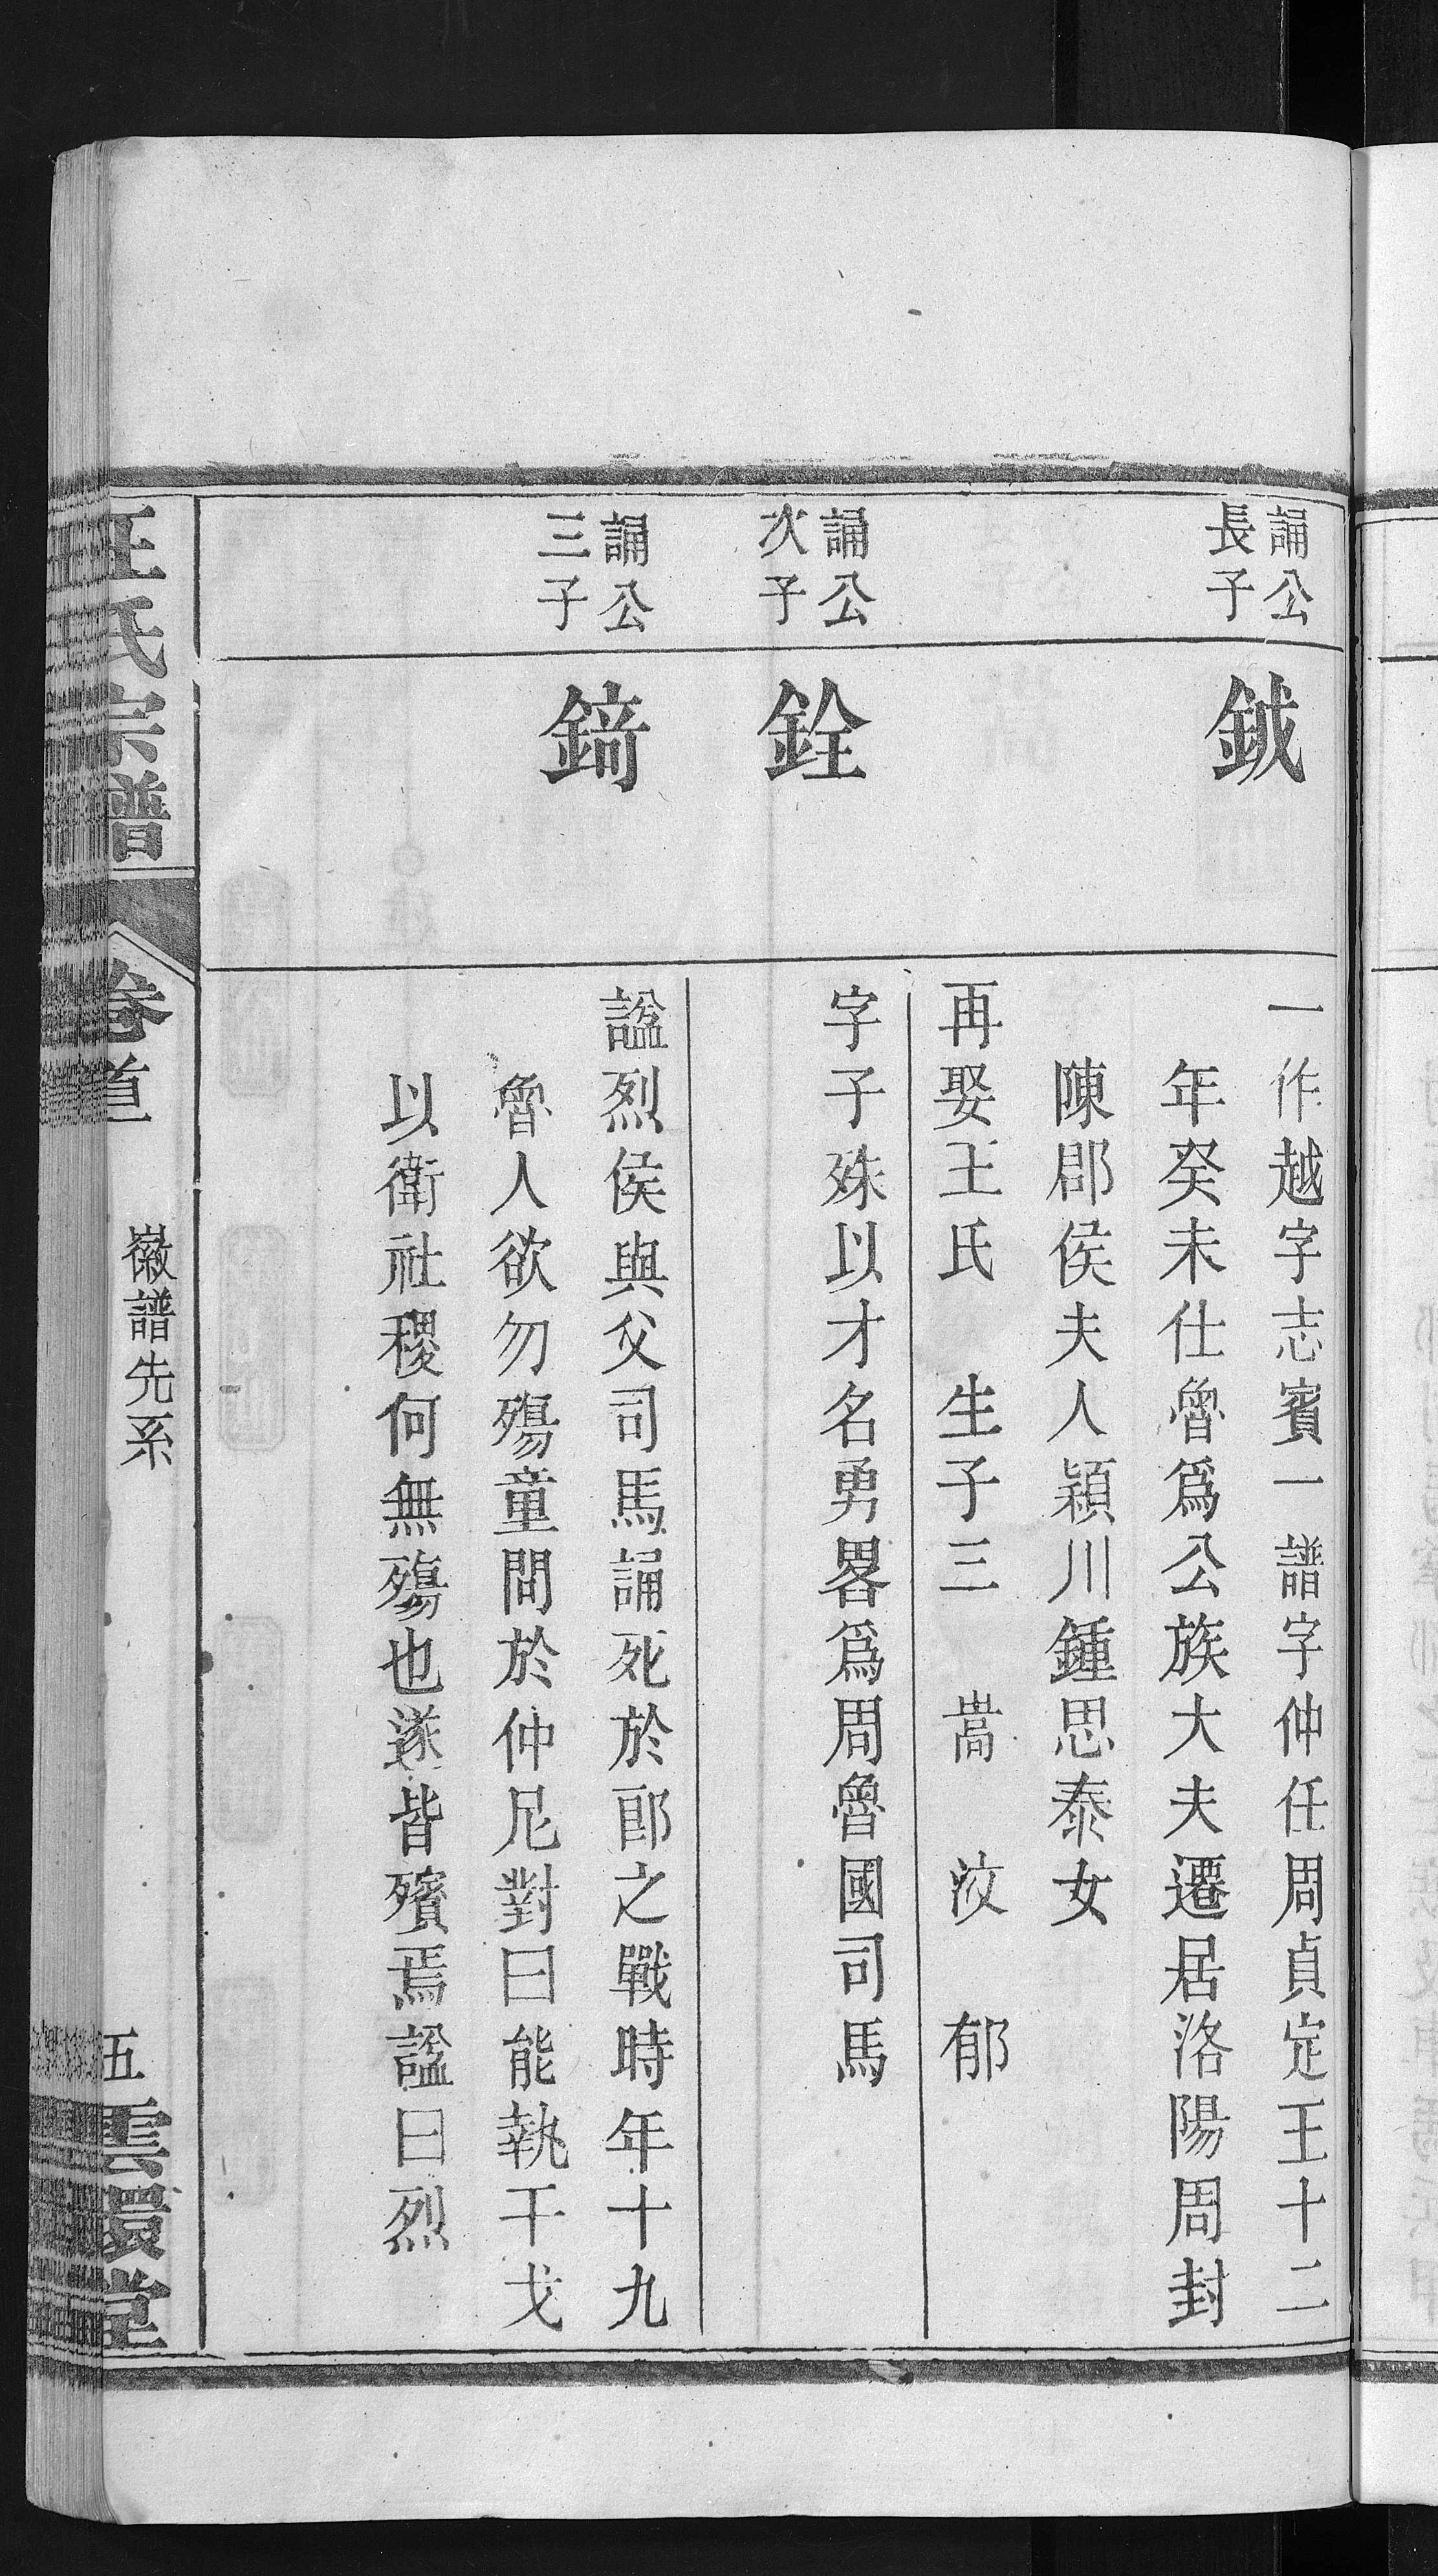 誦公
長子
鉞
一作越字志賓一譜字仲任周貞定王十二
年癸未仕魯爲公族大夫遷居洛陽周封
陳郡侯夫人潁川鍾思泰女
再娶王氏 生子三 嵩 汶 郁
誦公
次子
銓
字子殊以才名勇畧爲周魯國司馬
誦公
三子
錡
諡烈侯與父司馬誦死於郎之戰時年十九
魯人欲勿殤童問於仲尼對曰能執干戈
以衛社稷何無殤也遂皆殯焉諡曰烈
汪氏宗譜
卷首
徽譜先系
五
雲環堂